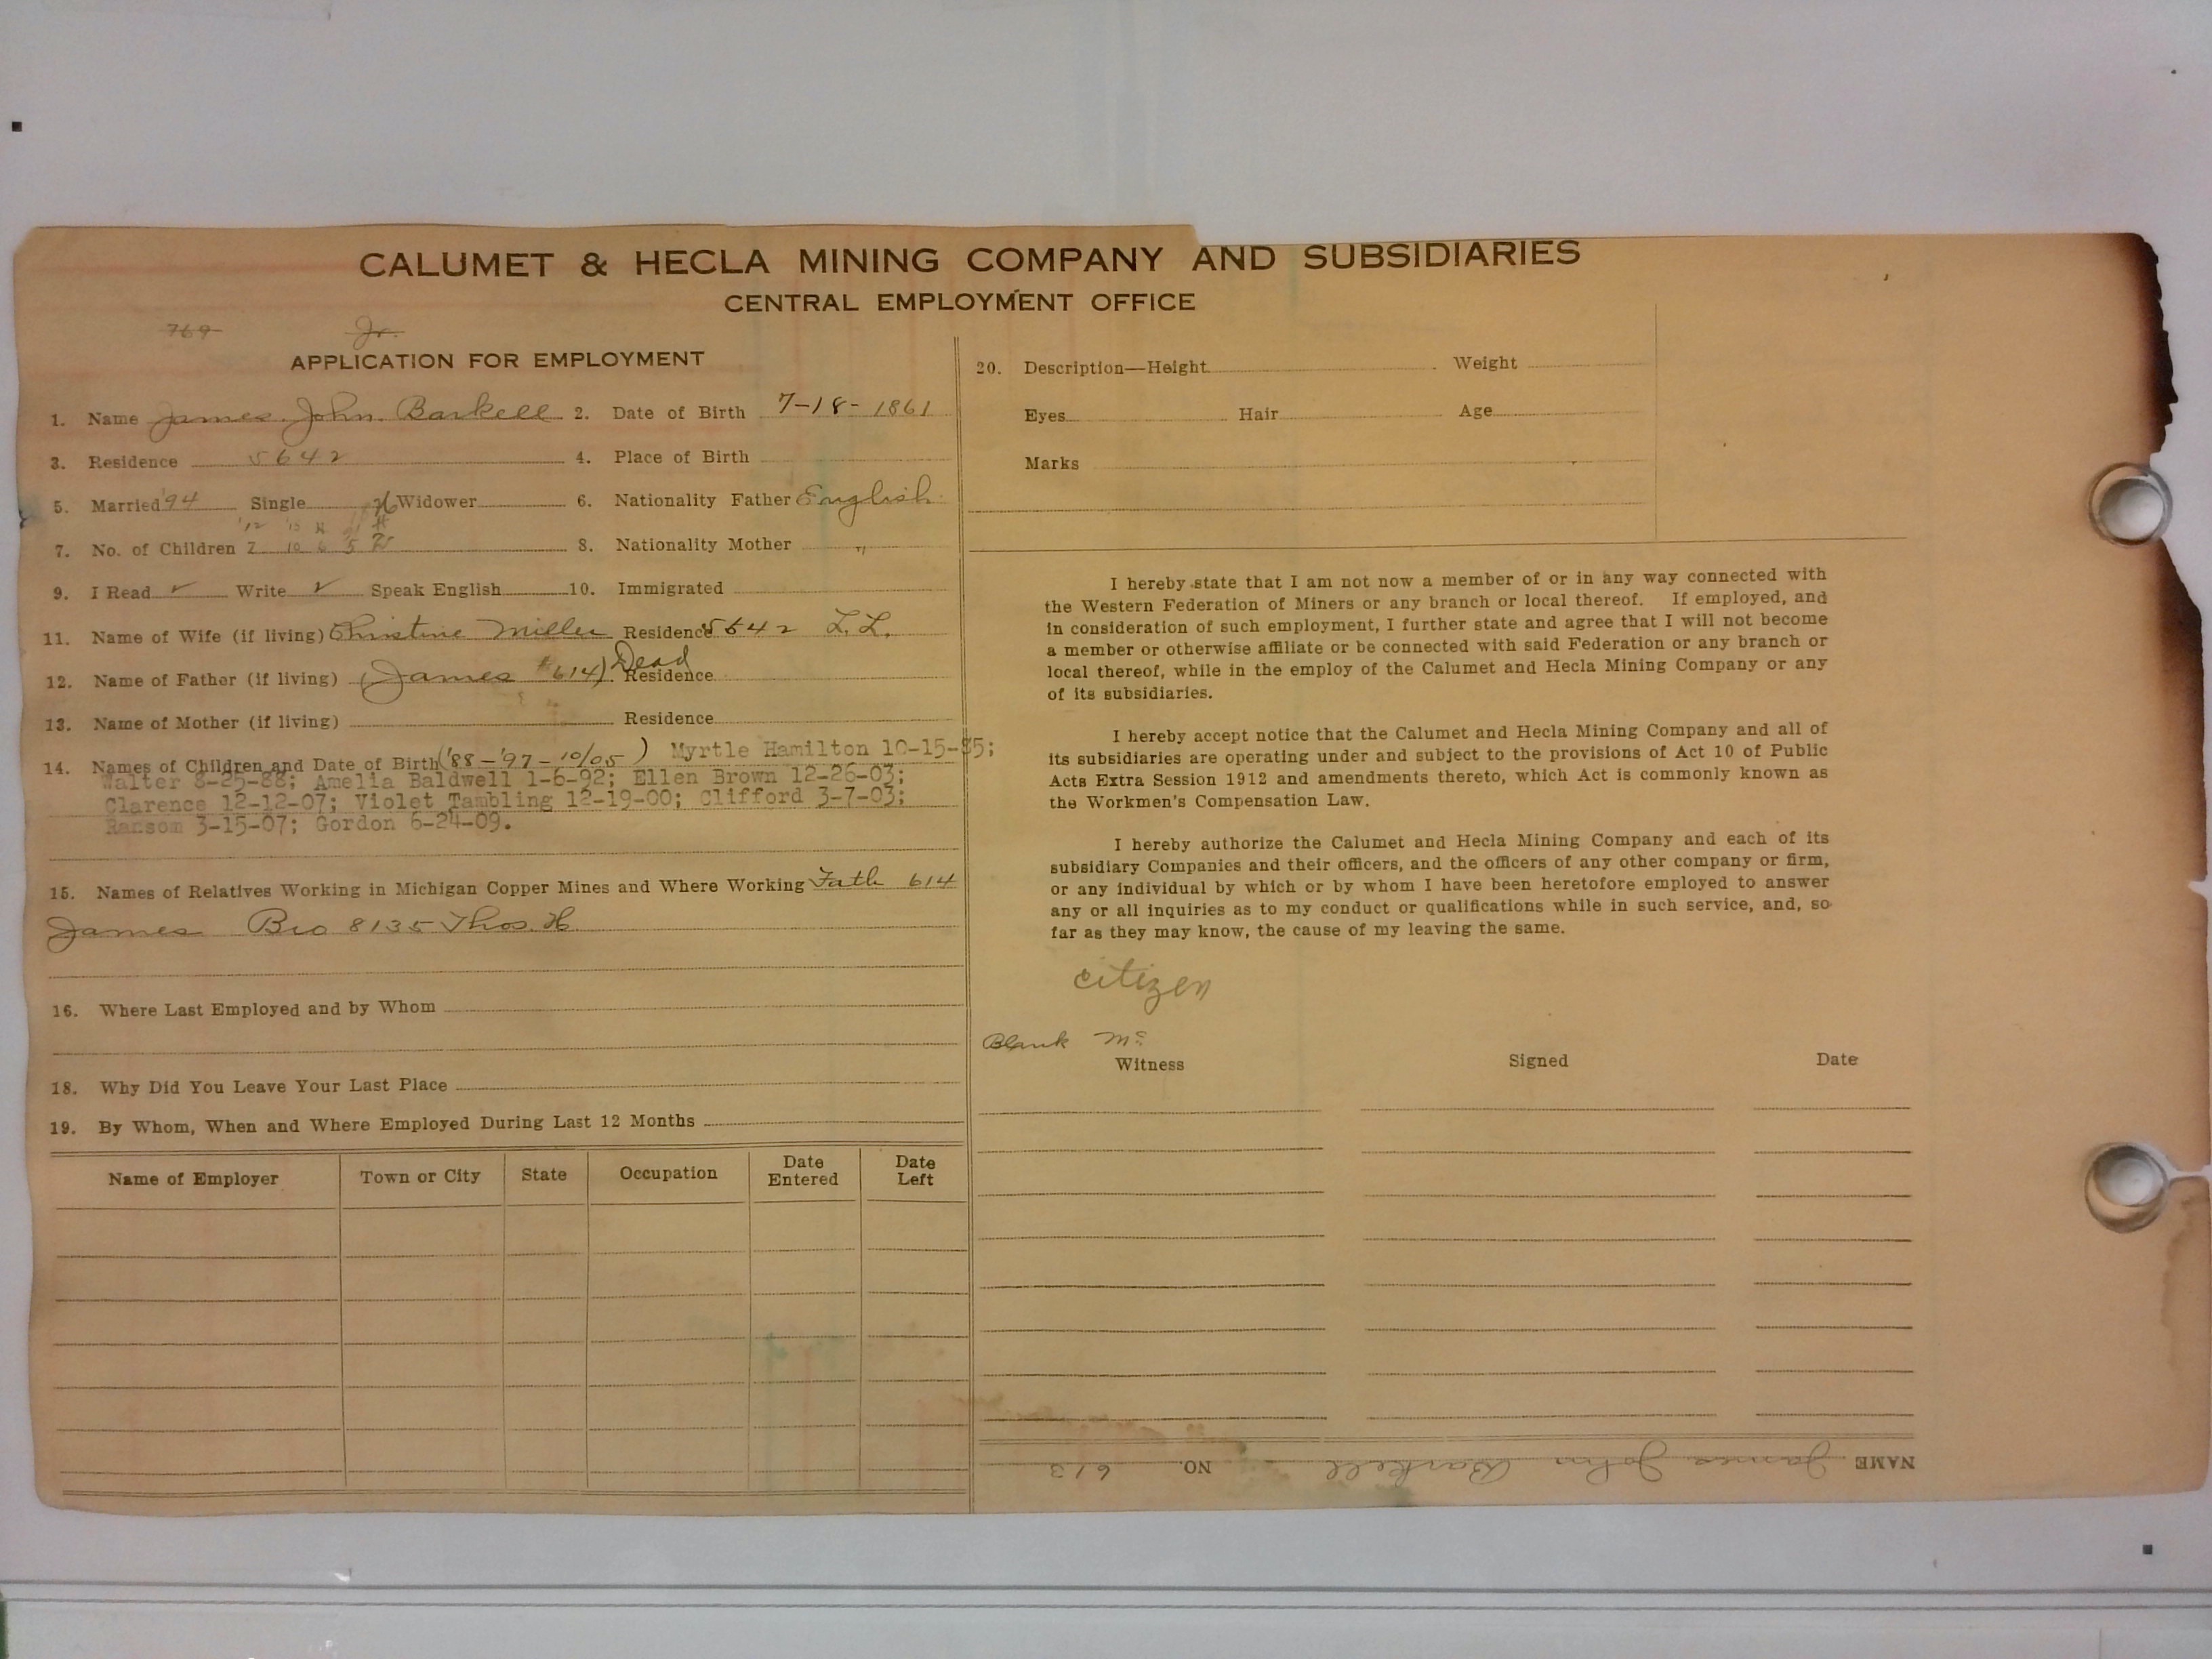 CALUMET & HECLA MINING COMPANY AND SUBSIDIARIES
CENTRAL EMPLOYMENT OFFICE
769 Jr.
APPLICATION FOR EMPLOYMENT
1. Name James John Barkell 2. Date of Birth 7-18-1861
3. Residence 5642 4. Place of Birth
5. Married '94 Single Widower 6. Nationality Father English
'12 '15
7. No. of Children 7 10 6 5 8. Nationality Mother "
9. I Read ✓ Write ✓ Speak English 10. Immigrated
11. Name of Wife (if living) Christine Miller Residence 5642 L.L.
12. Name of Father (if living) (James #614) Dead Residence
13. Name of Mother (if living) Residence
14. Names of Children and Date of Birth ('88-'97-10/05) Myrtle Hamilton 10-15-85;
Walter 8-25-88; Amelia Baldwell 1-6-92; Ellen Brown 12-26-03;
Clarence 12-12-07; Violet Tambling 12-19-00; Clifford 3-7-03;
Ransom 3-15-07; Gordon 6-24-09.
15. Names of Relatives Working in Michigan Copper Mines and Where Working Fath 614
James Bro 8135 Thos. H.
16. Where Last Employed and by Whom
18. Why Did You Leave Your Last Place
19. By Whom, When and Where Employed During Last 12 Months
Name of Employer Town or City State Occupation Date Entered Date Left
20. Description—Height Weight
Eyes Hair Age
Marks
I hereby state that I am not now a member of or in any way connected with
the Western Federation of Miners or any branch or local thereof. If employed, and
in consideration of such employment, I further state and agree that I will not become
a member or otherwise affiliate or be connected with said Federation or any branch or
local thereof, while in the employ of the Calumet and Hecla Mining Company or any
of its subsidiaries.
I hereby accept notice that the Calumet and Hecla Mining Company and all of
its subsidiaries are operating under and subject to the provisions of Act 10 of Public
Acts Extra Session 1912 and amendments thereto, which Act is commonly known as
the Workmen's Compensation Law.
I hereby authorize the Calumet and Hecla Mining Company and each of its
subsidiary Companies and their officers, and the officers of any other company or firm,
or any individual by which or by whom I have been heretofore employed to answer
any or all inquiries as to my conduct or qualifications while in such service, and, so
far as they may know, the cause of my leaving the same.
citizen
Blank Mc
Witness Signed Date
NAME James John Barkell NO. 613